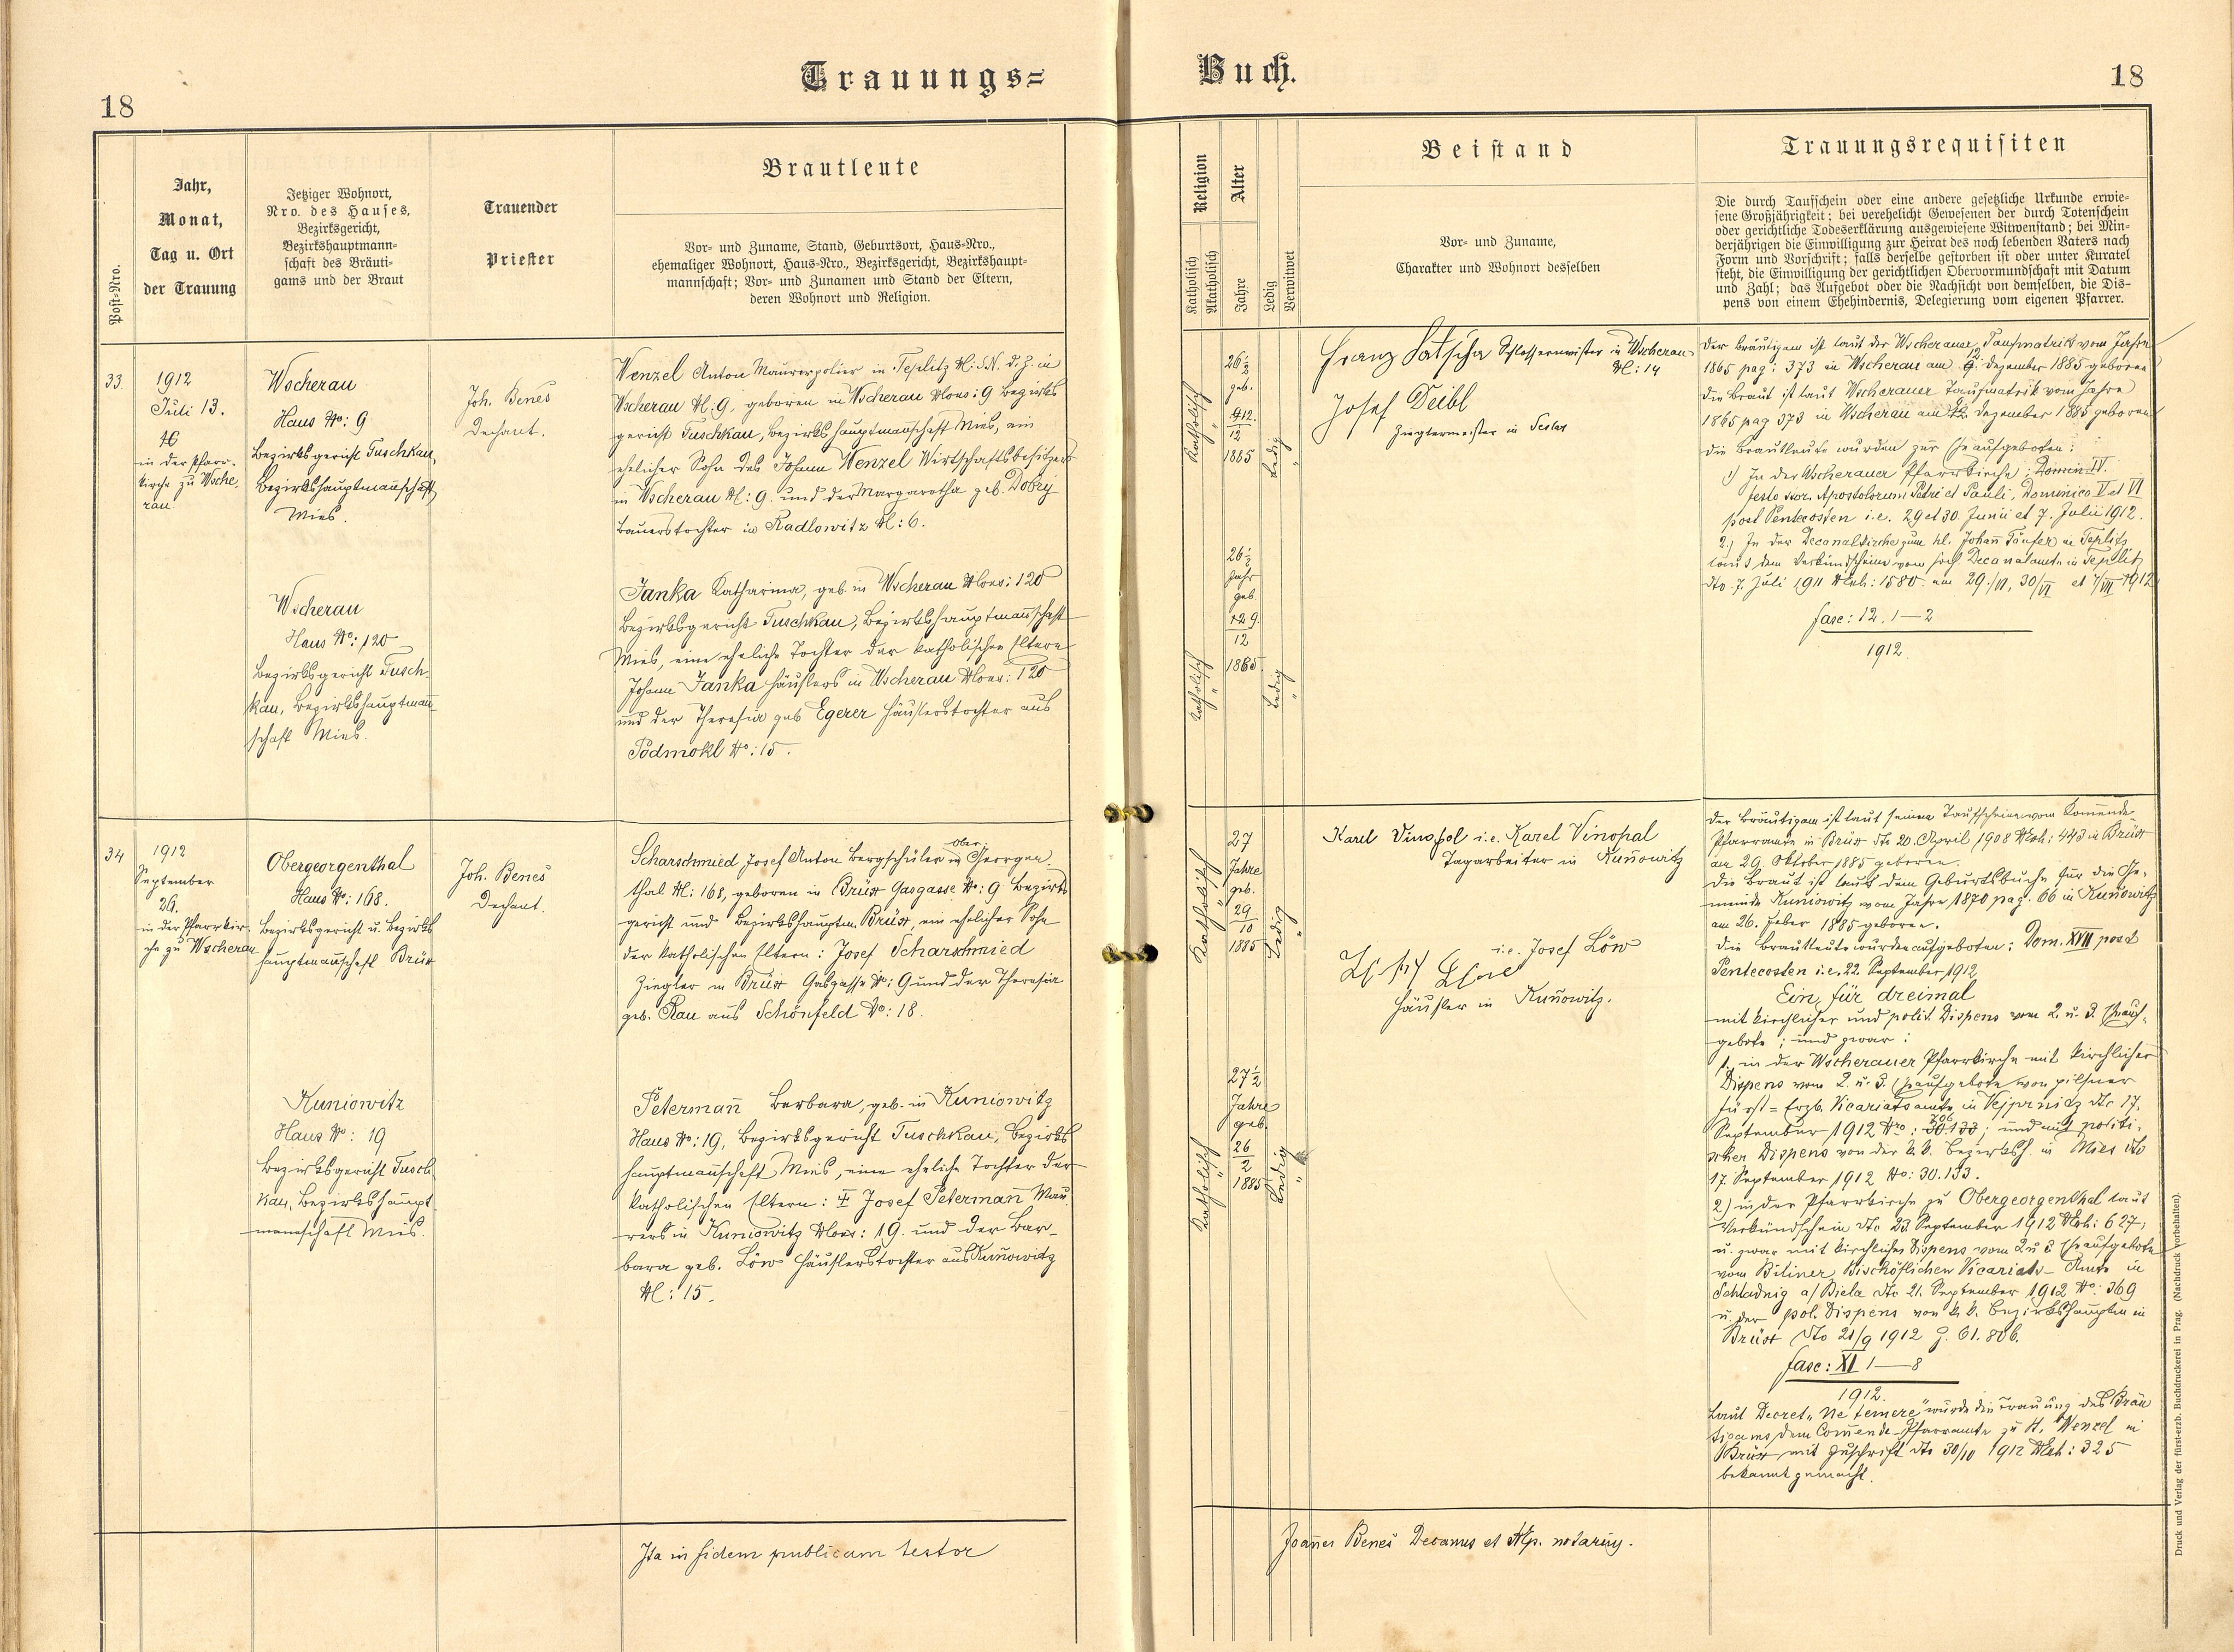 18
Trauungs=
Buch.
18
Post-Nro.
Jahr,
Monat,
Tag u. Ort
der Trauung
Jetziger Wohnort,
Nro. des Hauses,
Bezirksgericht,
Bezirkshauptmann-
schaft des Bräuti-
gams und der Braut
Trauender
Priester
Brautleute
Vor- und Zuname, Stand, Geburtsort, Haus-Nro.,
ehemaliger Wohnort, Haus-Nro., Bezirksgericht, Bezirkshaupt-
mannschaft; Vor- und Zunamen und Stand der Eltern,
deren Wohnort und Religion.
Religion
Katholisch
Akatholisch
Alter
Jahre
Ledig
Verwitwet
Beistand
Vor- und Zuname,
Charakter und Wohnort desselben
Trauungsrequisiten
Die durch Taufschein oder eine andere gesetzliche Urkunde erwie-
sene Großjährigkeit; bei verehelicht Gewesenen der durch Totenschein
oder gerichtliche Todeserklärung ausgewiesene Witwenstand; bei Min-
derjährigen die Einwilligung zur Heirat des noch lebenden Vaters nach
Form und Vorschrift; falls derselbe gestorben ist oder unter Kuratel
steht, die Einwilligung der gerichtlichen Obervormundschaft mit Datum
und Zahl; das Aufgebot oder die Nachsicht von demselben, die Dis-
pens von einem Ehehindernis, Delegierung vom eigenen Pfarrer.
33.
1912
Juli 13.
in der Pfarr-
kirche zu Wsche
rau.
Wscherau
Haus No: 9
Bezirksgericht Tuschkau,
Bezirkshauptmañschaft
Mies.
Joh. Beneš
Dechant.
Wenzel Anton Maurerpolier in Teplitz d. Z. in
Wscherau N: 9, geboren in Wscherau Ncons: 9 Bezirks
gericht Tuschkau, Bezirkshauptmañschaft Mies, ein
ehelicher Sohn des Johann Wenzel Wirtschaftsbesitzers
in Wscherau N: 9. und der Margaretha geb. Dobry
Bauerstochter in Radlowitz N: 6.
Katholisch
26½
geb.
12
1885
Ledig
Franz Latscha Schlossermeister in Wscherau
N: 14
Josef Deibl
Zieglermeister in
Der Bräutigam ist laut der Wscherauer Taufmatrik vom Jahre
1865 pag: 373 in Wscherau am 12. Dezember 1885 geboren
die Braut ist laut Wscherauer Taufmatrik vom Jahre
1865 pag 373 in Wscherau am 9. Dezember 1885 geboren
die Brautleute wurden zur Ehe aufgeboten:
1) In der Wscherauer Pfarrkirche: Domin IV.
festo sscr. Apostolorum Petri et Pauli, Dominica V et VI
post Pentecosten i.e. 29 et 30. Junii et 7. Julii 1912.
2.) In der Decanalkirche zum hl. Johañ Täufer in Teplitz
laut dem Verkündscheine vom hoch. Decanalamte in Teplitz
dto. 7. Juli 1911 Nexh: 1580. am 29./VI, 30/VI et 7/VII 1912
fasc: 12. 1—2
1912.
Wscherau
Haus No: 120
Bezirksgericht Tusch-
kau, Bezirkshauptmañ-
schaft Mies.
Janka Katharina, geb. in Wscherau Ncons: 120
Bezirksgericht Tuschkau, Bezirkshauptmañschaft
Mies, eine eheliche Tochter der katholischen Eltern
Johann Janka Häuslers in Wscherau Ncons: 120
und der Theresia geb Egerer Häuslerstochter aus
Podmokl No: 15.
Katholisch
26½
Jahr
geb.
9
12
1885
Ledig
34
1912
September
26.
in der Pfarrkir-
che zu Wscherau
Obergeorgenthal
Haus No: 168.
Bezirksgericht u. Bezirks
hauptmañschaft Brüx
Joh. Beneš
Dechant.
Scharschmied Josef Anton Bergschüler in Ober Georgen-
thal N: 168, geboren in Brüx Gasgasse No: 9 Bezirks
gericht und Bezirkshauptm. Brüx, ein ehelicher Sohn
der katholischen Eltern: Josef Scharschmied
Ziegler in Brüx Gasgasse No: 9 und der Theresia
geb. Rau aus Schönfeld No: 18.
Katholisch
27
Jahre
geb.
29
10
1885
Ledig
Karel Vinopol i.e. Karel Vinopal
Tagarbeiter in Kuñowitz
i.e. Josef Löw
Häusler in Kuñowitz.
Der Bräutigam ist laut seines Taufscheines vom Komende-
Pfarramte in Brüx dto 20. April 1908 Nexh: 443 in Brüx
am 29. Oktober 1885 geboren.
Die Braut ist laut dem Geburtsbuche für die Ge-
meinde Kuniowitz vom Jahre 1870 pag. 66 in Kuñowitz
am 26. Feber 1885 geboren.
Die Brautleute wurden aufgeboten: Dom. XVII post
Pentecosten i.e. 22. September 1912
Ein für dreimal
mit kirchlicher und polit. Dispens vom 2. u. 3. Eheauf-
gebote; und zwar:
1. in der Wscherauer Pfarrkirche mit kirchlicher
Dispens vom 2. u. 3. Eheaufgebote vom Pilsner
fürst=Erzb. Vicariatsamte in Vejprnitz dto 17.
September 1912 Nro: 206; und mit politi-
scher Dispens von der k.k. Bezirksh. in Mies dto
17. September 1912 No: 30.133.
2) in der Pfarrkirche zu Obergeorgenthal laut
Verkündschein dto 23. September 1912 Nexh: 627,
u. zwar mit kirchlicher Dispens vom 2 u 3 Eheaufgebote
vom Biliner Bischöflichen Vicariats-Amte in
Schladnig a/Biela dto 21. September 1912 No. 369
u. der pol. Dispens von k.k. Bezirkshauptm in
Brüx dto 21/9 1912 Z. 61.806.
fasc: XI 1—8
1912.
Laut Decret „Ne temere" wurde die Trauung des Bräu
tigams dem Comende-Pfarramte zu H. Wenzel in
Brüx mit Zuschrift dto 30/10 1912 Nexh: 325
bekannt gemacht.
Kuniowitz
Haus No: 19
Bezirksgericht Tusch
kau, Bezirkshaupt
mannschaft Mies.
Petermañ Barbara, geb. in Kuniowitz
Haus No: 19, Bezirksgericht Tuschkau, Bezirks
hauptmañschaft Mies, eine eheliche Tochter der
katholischen Eltern: Josef Petermañ Mau
rers in Kuniowitz Ncons: 19. und der Bar-
bara geb. Löw Häuslerstochter aus Kuñowitz
N: 15.
Katholisch
27½
Jahre
geb.
26
2
1885
Ledig
Ita in fidem publicam testor
Joañes Beneš Decanus et Ap. notarius.
Druck und Verlag der fürst-erzb. Buchdruckerei in Prag. (Nachdruck vorbehalten).